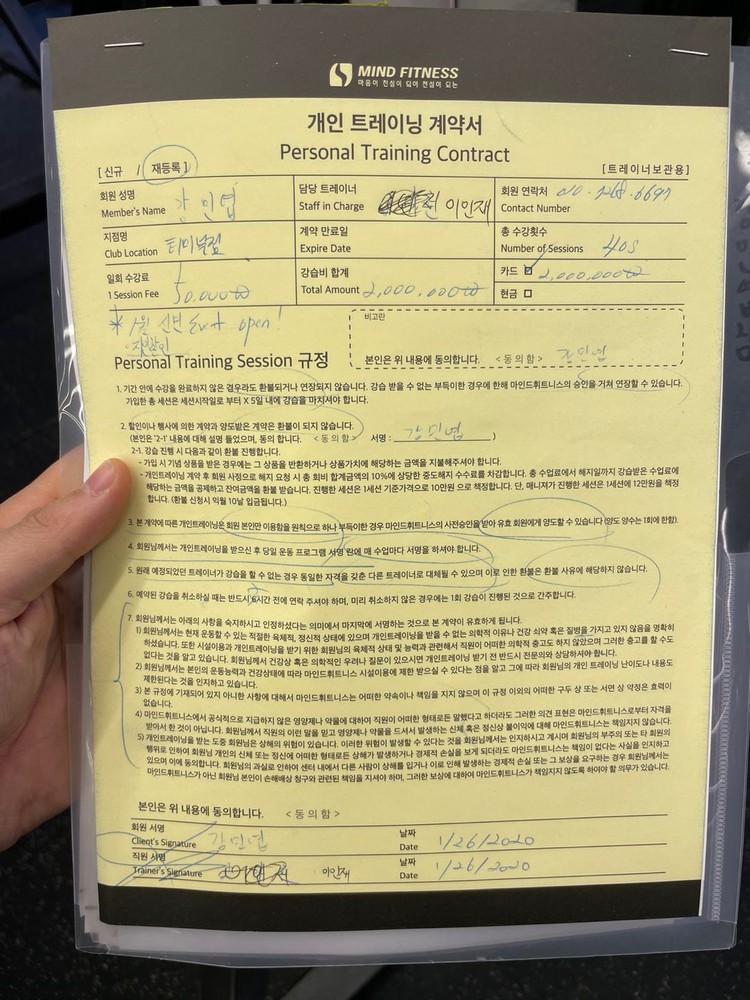 MIND FITNESS
마음이 전심이 되어 전설이 되는
개인 트레이닝 계약서
Personal Training Contract
[ 신규 / 재등록 ] [트레이너보관용]
회원 성명 Member's Name 강민엽 담당 트레이너 Staff in Charge 이인재 회원 연락처 Contact Number
지점명 Club Location 계약 만료일 Expire Date 총 수강횟수 Number of Sessions 40s
일회 수강료 1 Session Fee 50,000₩ 강습비 합계 Total Amount 2,000,000₩ 카드 2,000,000₩
현금
* 1월 신년 Event open!
비고란
본인은 위 내용에 동의합니다. <동의함> 강민엽
Personal Training Session 규정
1. 기간 안에 수강을 완료하지 않은 경우라도 환불되거나 연장되지 않습니다. 강습 받을 수 없는 부득이한 경우에 한해 마인드휘트니스의 승인을 거쳐 연장할 수 있습니다.
가입한 총 세션은 세션시작일로 부터 X 5일 내에 강습을 마치셔야 합니다.
2. 할인이나 행사에 의한 계약과 양도받은 계약은 환불이 되지 않습니다.
(본인은 '2-1' 내용에 대해 설명 들었으며, 동의 합니다. <동의함> 서명 : 강민엽 )
2-1. 강습 진행 시 다음과 같이 환불 진행합니다.
- 가입 시 기념 상품을 받은 경우에는 그 상품을 반환하거나 상품가치에 해당하는 금액을 지불해주셔야 합니다.
- 개인트레이닝 계약 후 회원 사정으로 해지 요청 시 총 회비 합계금액의 10%에 상당한 중도해지 수수료를 차감합니다. 총 수업료에서 해지일까지 강습받은 수업료에
해당하는 금액을 공제하고 잔여금액을 환불 받습니다. 진행한 세션은 1세션 기준가격으로 10만원 으로 책정합니다. 단, 매니져가 진행한 세션은 1세션에 12만원을 책정
합니다. (환불 신청시 익월 10날 입금됩니다.)
3. 본 계약에 따른 개인트레이닝은 회원 본인만 이용함을 원칙으로 하나 부득이한 경우 마인드휘트니스의 사전승인을 받아 유효 회원에게 양도할 수 있습니다 (양도 양수는 1회에 한함).
4. 회원님께서는 개인트레이닝을 받으신 후 당일 운동 프로그램 서명 란에 매 수업마다 서명을 하셔야 합니다.
5. 원래 예정되었던 트레이너가 강습을 할 수 없는 경우 동일한 자격을 갖춘 다른 트레이너로 대체될 수 있으며 이로 인한 환불은 환불 사유에 해당하지 않습니다.
6. 예약된 강습을 취소하실 때는 반드시 6시간 전에 연락 주셔야 하며, 미리 취소하지 않은 경우에는 1회 강습이 진행된 것으로 간주합니다.
7. 회원님께서는 아래의 사항을 숙지하시고 인정하셨다는 의미에서 마지막에 서명하는 것으로 본 계약이 유효하게 됩니다.
1) 회원님께서는 현재 운동할 수 있는 적절한 육체적, 정신적 상태에 있으며 개인트레이닝을 받을 수 없는 의학적 이유나 건강 쇠약 혹은 질병을 가지고 있지 않음을 명확히
하셨습니다. 또한 시설이용과 개인트레이닝을 받기 위한 회원님의 육체적 상태 및 능력과 관련해서 직원이 어떠한 의학적 충고도 하지 않았으며 그러한 충고를 할 수도
없다는 것을 알고 있습니다. 회원님께서 건강상 혹은 의학적인 우려나 질문이 있으시면 개인트레이닝 받기 전 반드시 전문의와 상담하셔야 합니다.
2) 회원님께서는 본인의 운동능력과 건강상태에 따라 마인드휘트니스 시설이용에 제한 받으실 수 있다는 점을 알고 그에 따라 회원님의 개인 트레이닝 난이도나 내용도
제한된다는 것을 인지하고 있습니다.
3) 본 규정에 기재되어 있지 아니한 사항에 대해서 마인드휘트니스는 어떠한 약속이나 책임을 지지 않으며 이 규정 이외의 어떠한 구두 상 또는 서면 상 약정은 효력이
없습니다.
4) 마인드휘트니스에서 공식적으로 지급하지 않은 영양제나 약물에 대하여 직원이 어떠한 형태로든 말했다고 하더라도 그러한 의견 표현은 마인드휘트니스로부터 자격을
받아서 한 것이 아닙니다. 회원님께서 직원의 이런 말을 믿고 영양제나 약물을 드셔서 발생하는 신체 혹은 정신상 불이익에 대해 마인드휘트니스는 책임지지 않습니다.
5) 개인트레이닝을 받는 도중 회원님은 상해의 위험이 있습니다. 이러한 위험이 발생할 수 있다는 것을 회원님께서는 인지하시고 계시며 회원님의 부주의 또는 타 회원의
행위로 인하여 회원님 개인의 신체 또는 정신에 어떠한 형태로든 상해가 발생하거나 경제적 손실을 보게 되더라도 마인드휘트니스는 책임이 없다는 사실을 인지하고
있으며 이에 동의합니다. 회원님의 과실로 인하여 센터 내에서 다른 사람이 상해를 입거나 이로 인해 발생하는 경제적 손실 또는 그 보상을 요구하는 경우 회원님께서는
마인드휘트니스가 아닌 회원님 본인이 손해배상 청구와 관련된 책임을 지셔야 하며, 그러한 보상에 대하여 마인드휘트니스가 책임지지 않도록 하여야 할 의무가 있습니다.
본인은 위 내용에 동의합니다. <동의함>
회원 서명 Client's Signature 강민엽 날짜 Date 1/26/2020
직원 서명 Trainer's Signature 이인재 날짜 Date 1/26/2020